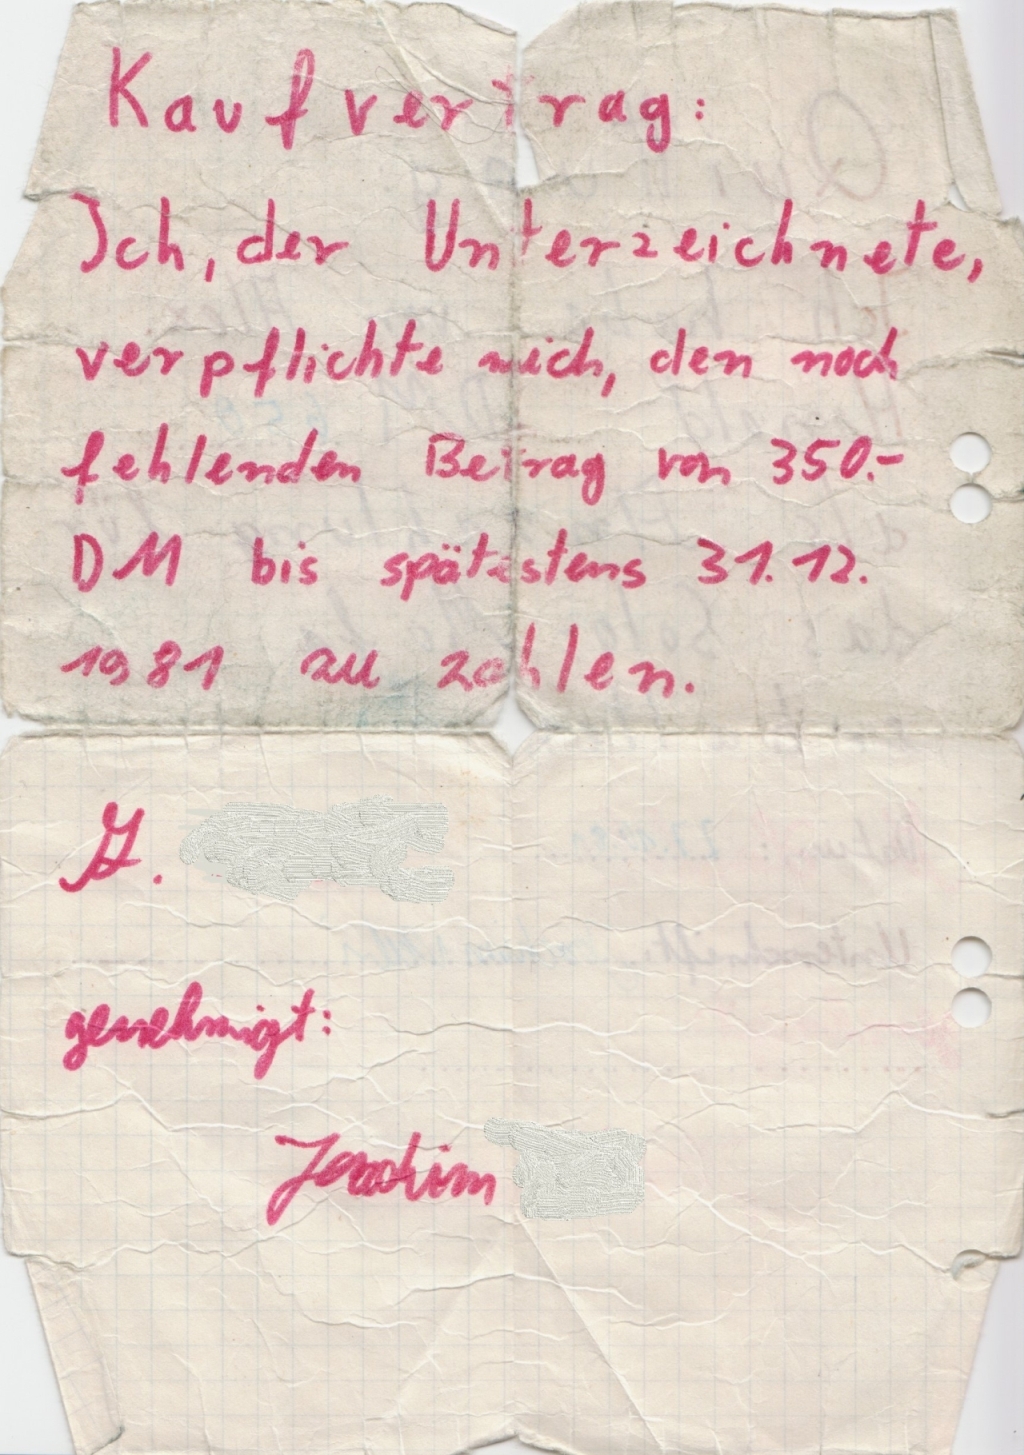 Kaufvertrag:
Ich, der Unterzeichnete,
verpflichte mich, den noch
fehlenden Betrag von 350.-
DM bis spätestens 31.12.
1981 zu zahlen.
G.
genehmigt:
Joachim